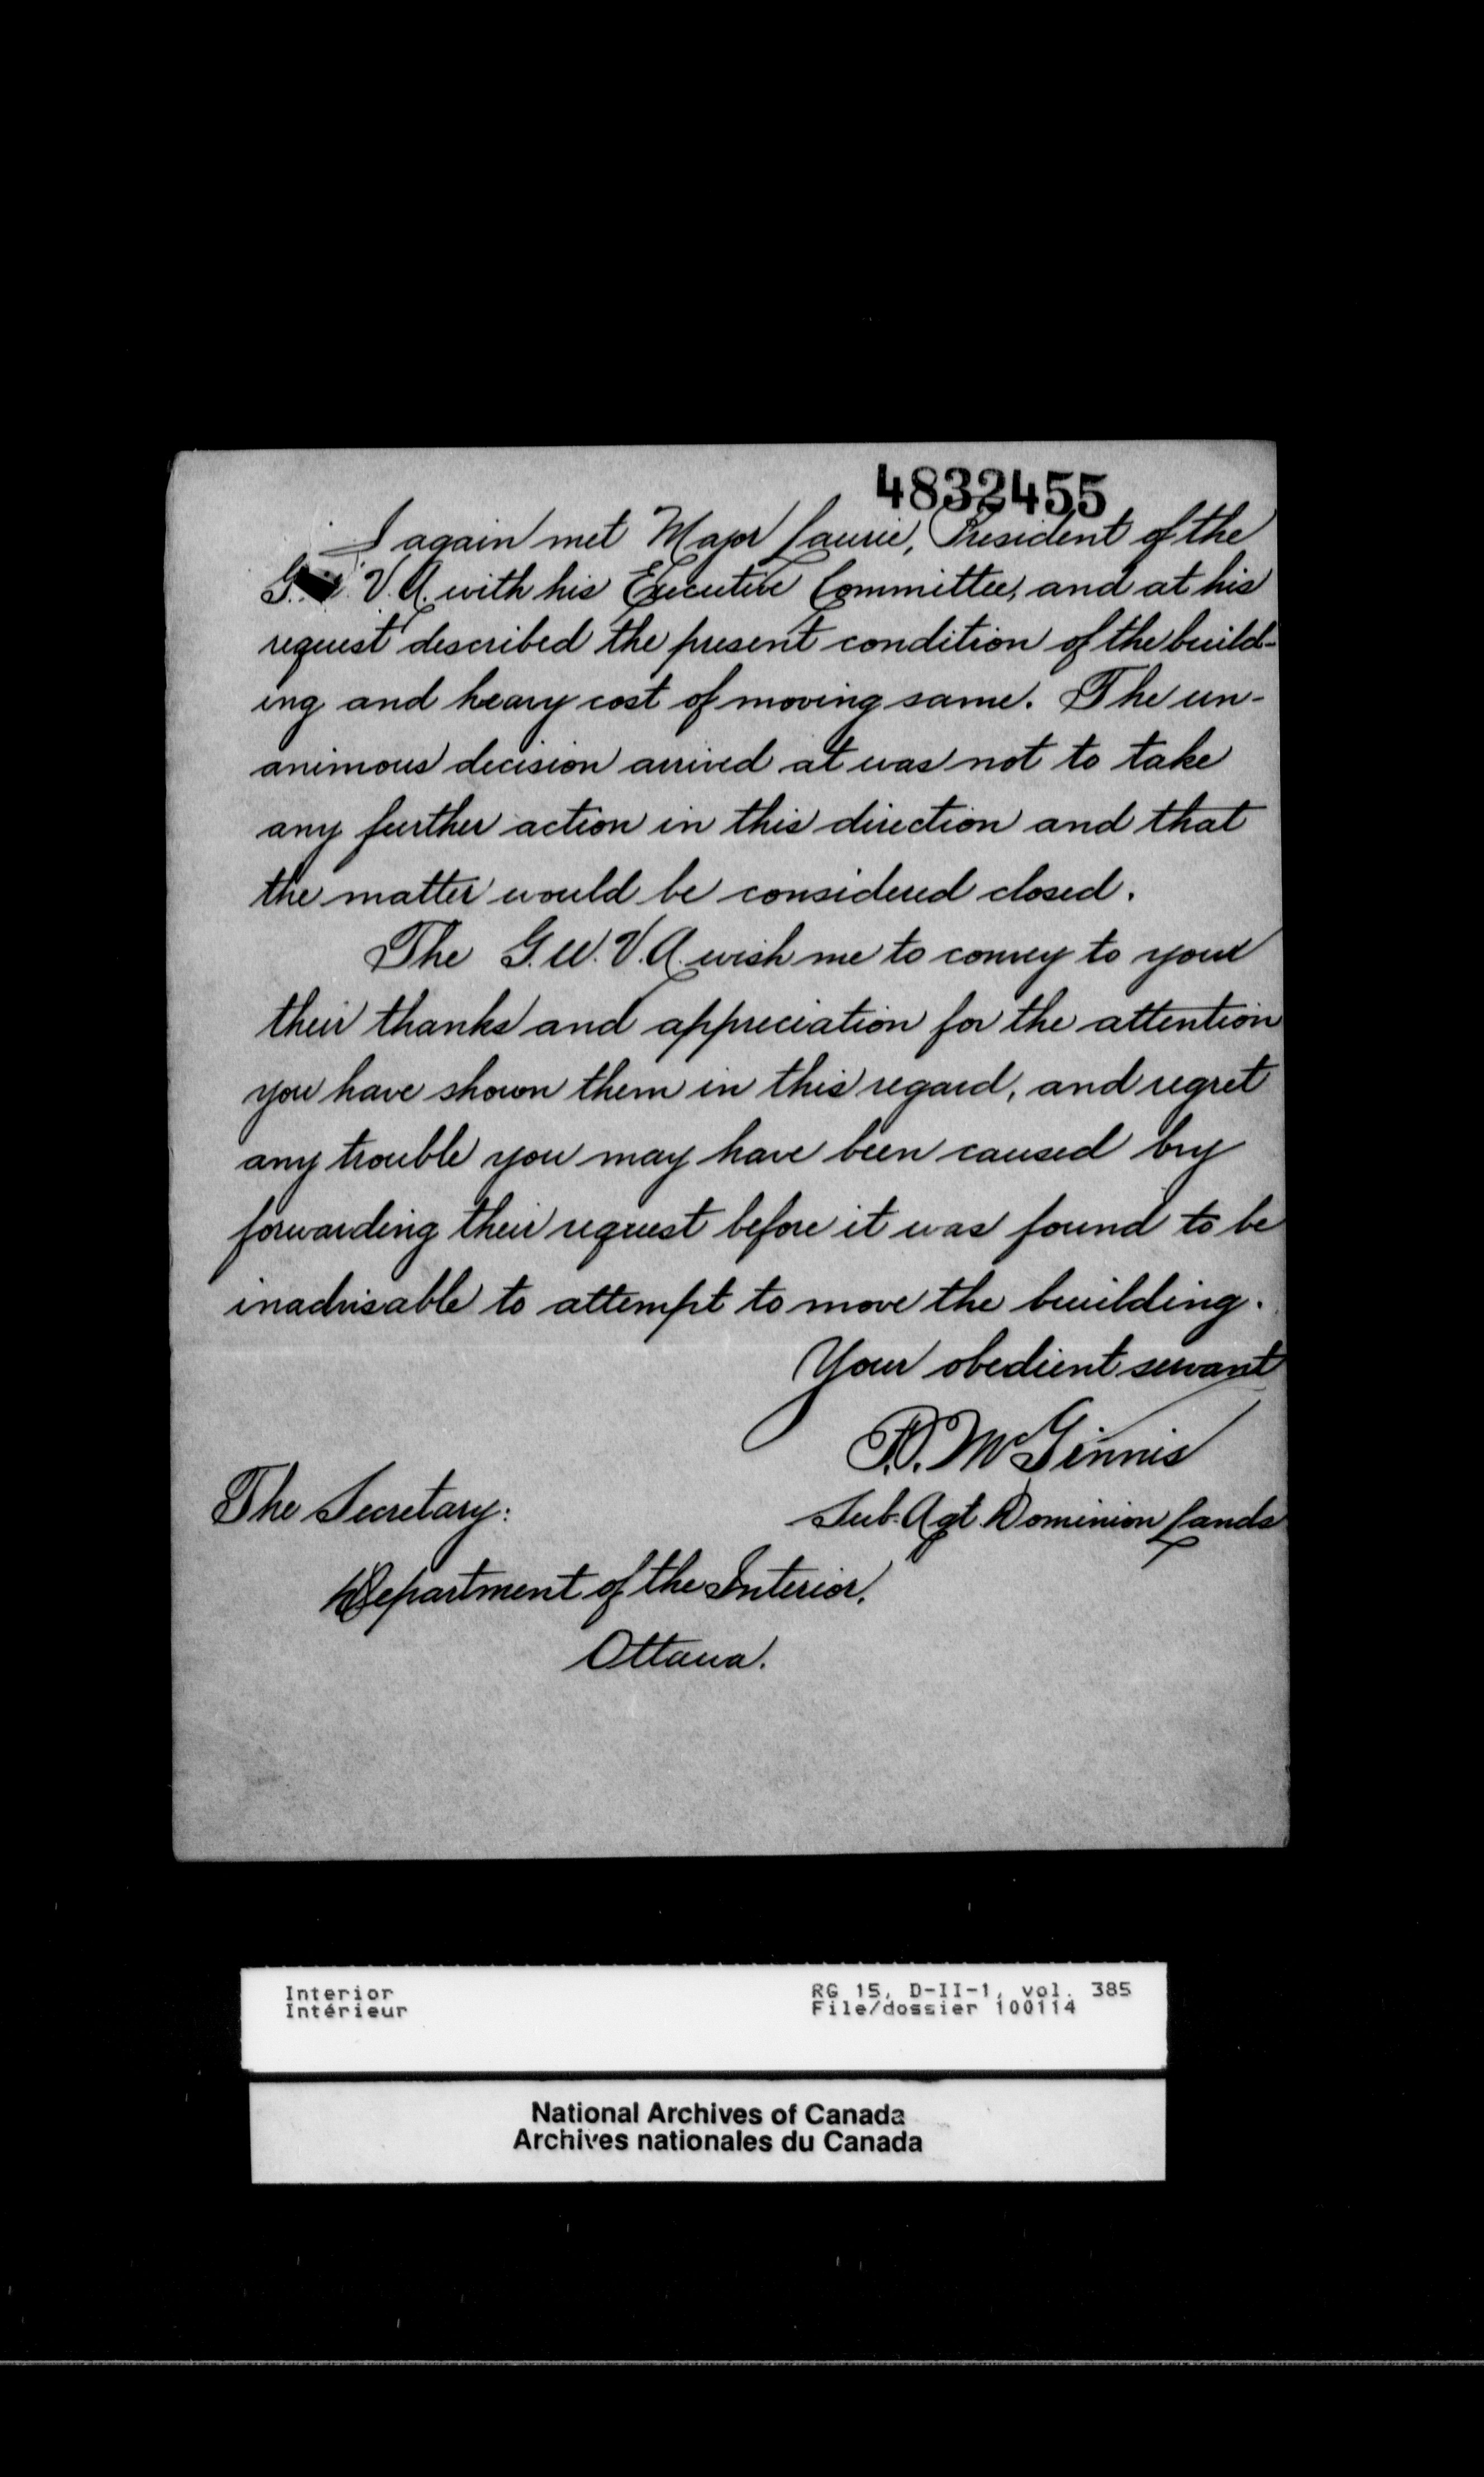 4832455
I again met Major Laurie, President of the
G.W. V.A. with his Executive Committee, and at his
request described the present condition of the build-
ing and heavy cost of moving same. The un-
animous decision arrived at was not to take
any further action in this direction and that
the matter would be considered closed.
The G.W.V.A. wish me to convey to you
their thanks and appreciation for the attention
you have shown them in this regard, and regret
any trouble you may have been caused by
forwarding their request before it was found to be
inadvisable to attempt to move the building.
Your obedient servant
McGinnis
The Secretary:
Sub. Agt. Dominion Lands
Department of the Interior,
Ottawa.
Interior
Intérieur
RG 15, D-II-1, vol. 385
File/dossier 100114
National Archives of Canada
Archives nationales du Canada